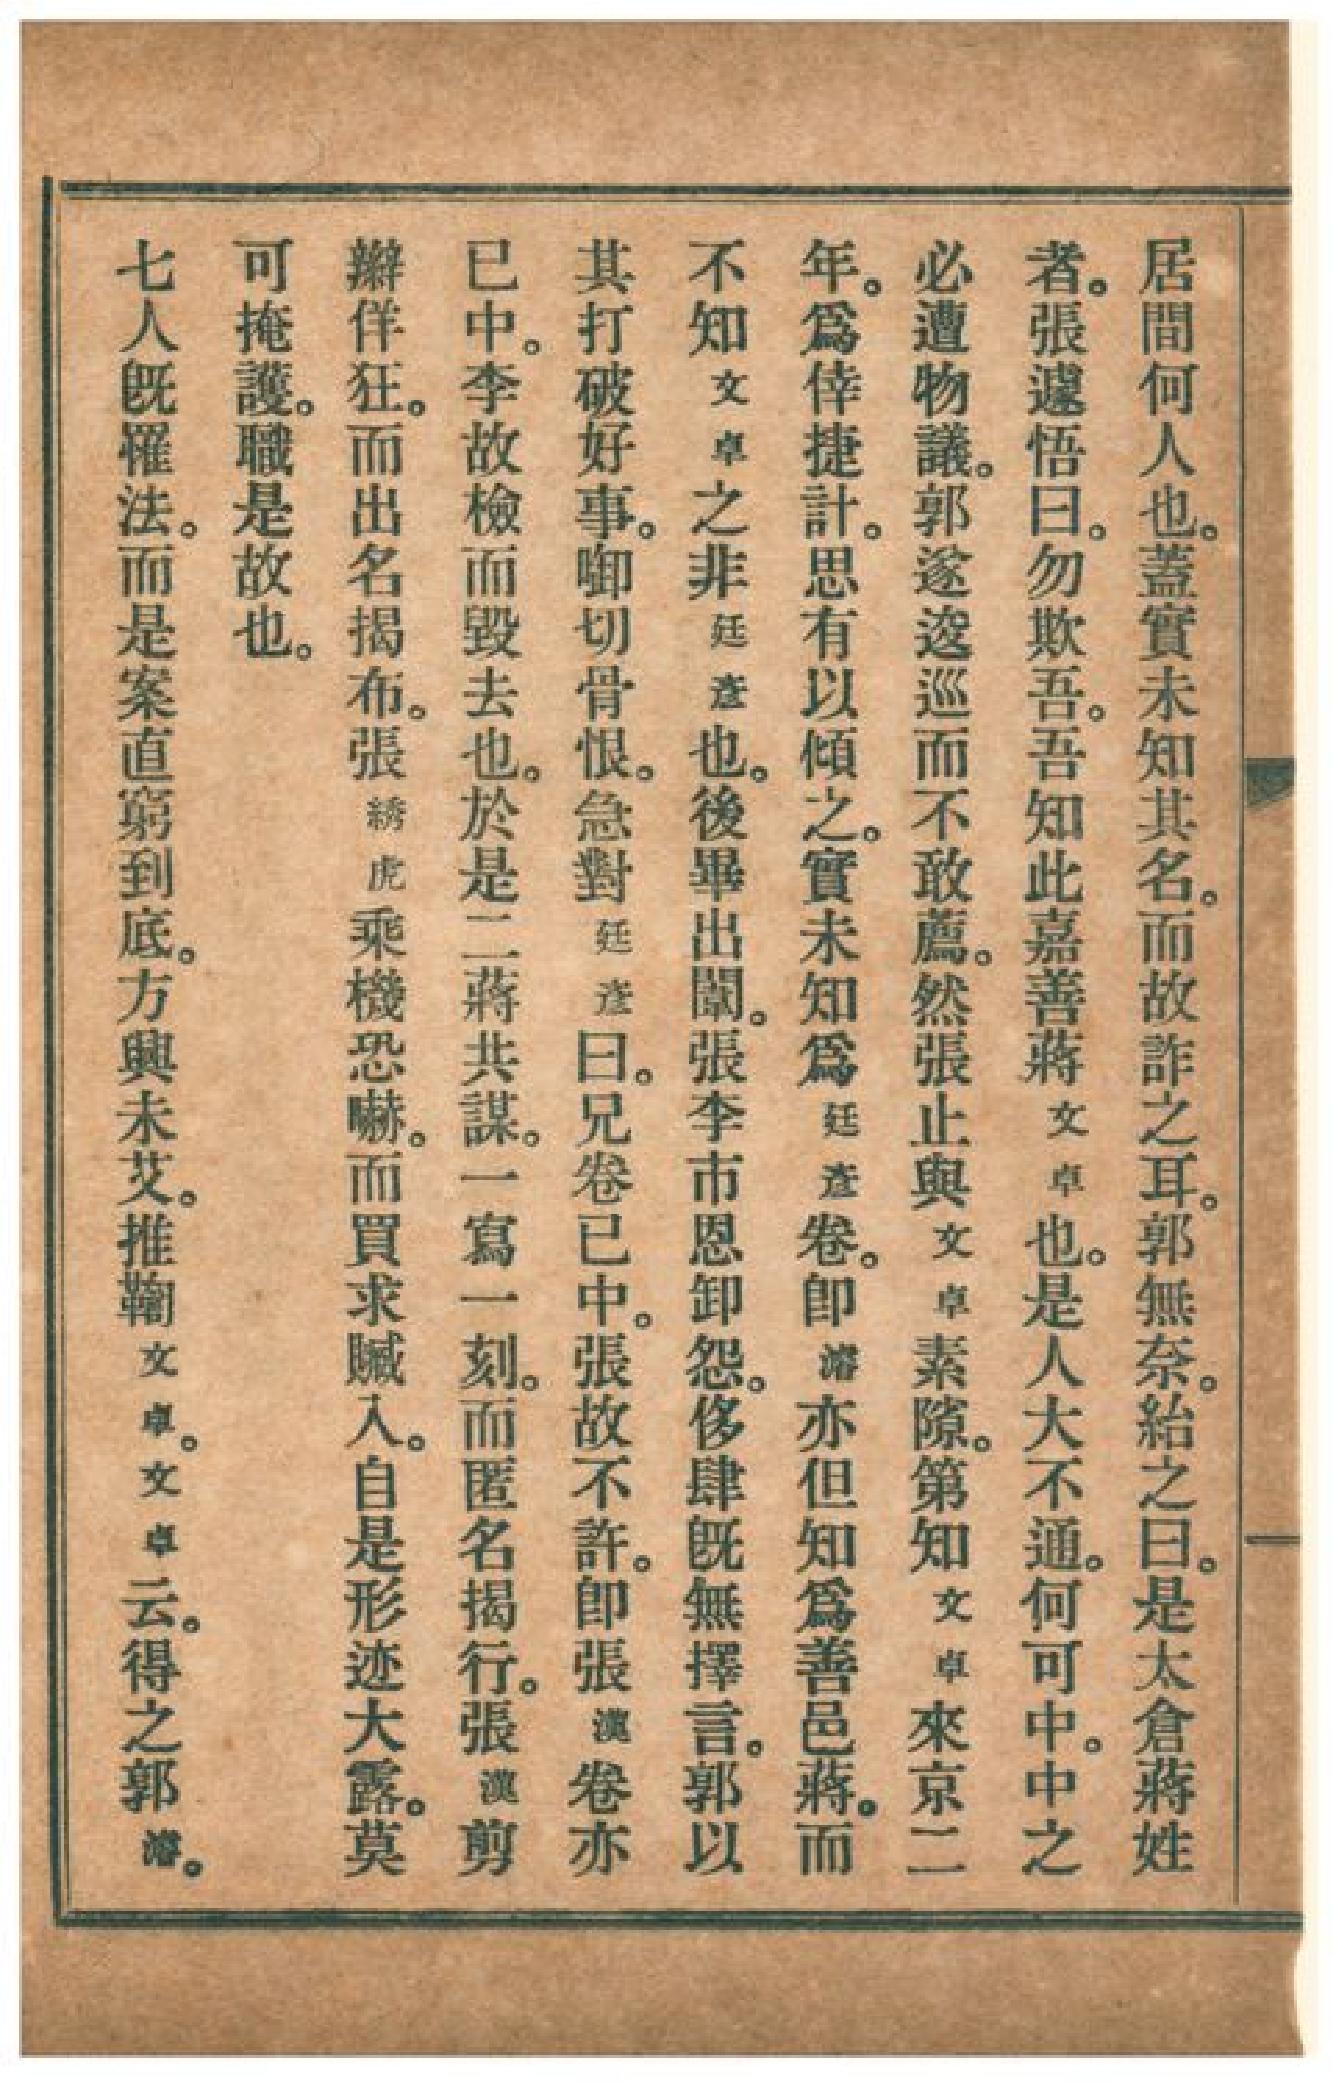 居間何人也。蓋實未知其名。而故詐之耳。郭無奈。紿之曰。是太倉蔣姓
者。張遽悟曰。勿欺吾。吾知此嘉善蔣文卓也。是人大不通。何可中。中之
必遭物議。郭遂逡巡而不敢薦。然張止與文卓素隙。第知文卓來京二
年。爲倖捷計。思有以傾之。實未知爲廷彥卷。卽濬亦但知爲善邑蔣。而
不知文卓之非廷彥也。後畢出闈。張李市恩卸怨。侈肆旣無擇言。郭以
其打破好事。啣切骨恨。急對廷彥曰。兄卷已中。張故不許。卽張漢卷亦
已中。李故檢而毀去也。於是二蔣共謀。一寫一刻。而匿名揭行。張漢剪
辮佯狂。而出名揭布。張綉虎乘機恐嚇。而買求贓入。自是形迹大露。莫
可掩護。職是故也。
七人旣罹法。而是案直窮到底。方興未艾。推鞫文卓。文卓云。得之郭濬。